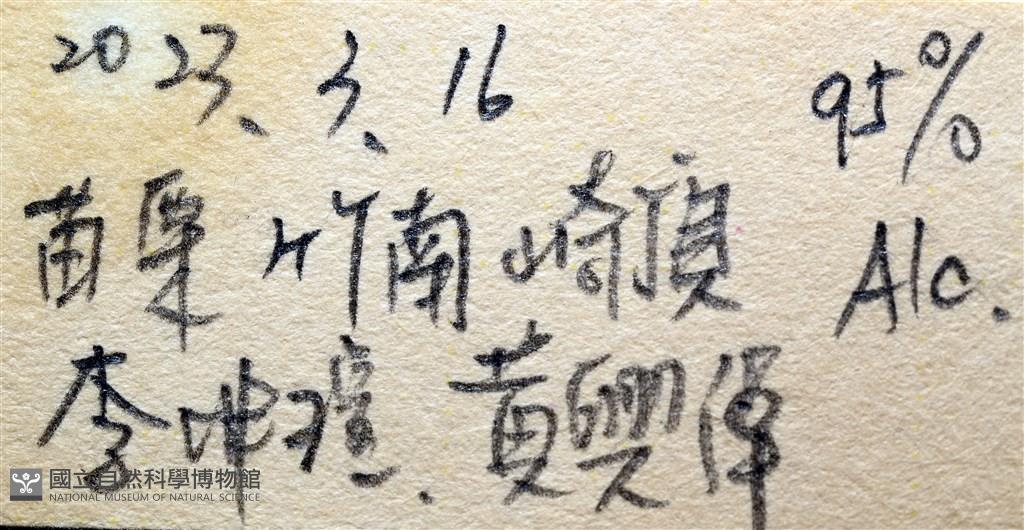 2023、3、16 95%
苗栗 竹南 崎頂 Alc.
李坤瑄、黃興倬
國立自然科學博物館
NATIONAL MUSEUM OF NATURAL SCIENCE